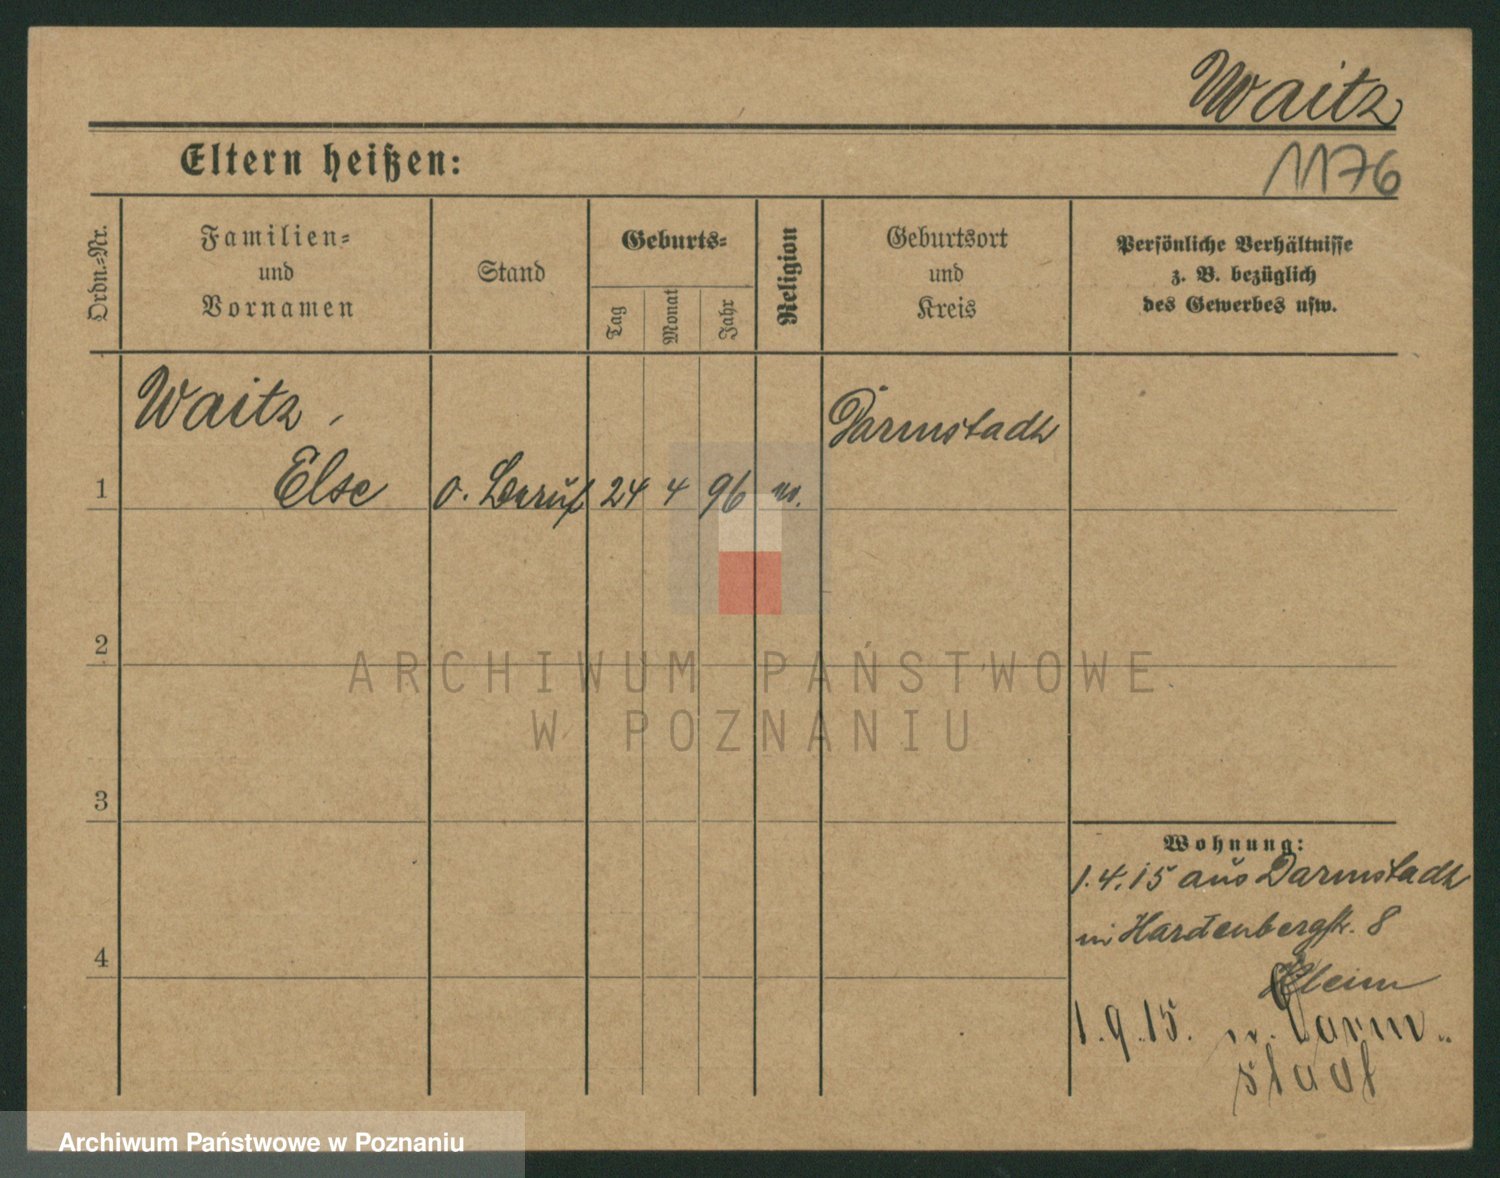 Waitz
Eltern heißen:
1176
Ordn.-Nr.
Familien-
und
Vornamen
Stand
Geburts-
Tag
Monat
Jahr
Religion
Geburtsort
und
Kreis
Persönliche Verhältnisse
z. B. bezüglich
des Gewerbes usw.
Waitz,
Else
o. Beruf
24
4
96
Darmstadt
1
2
3
4
Wohnung:
1.4.15 aus Darmstadt
Hardenbergstr. 8
1.9.15. n. Darm-
stadt
ARCHIWUM PAŃSTWOWE
W POZNANIU
Archiwum Państwowe w Poznaniu